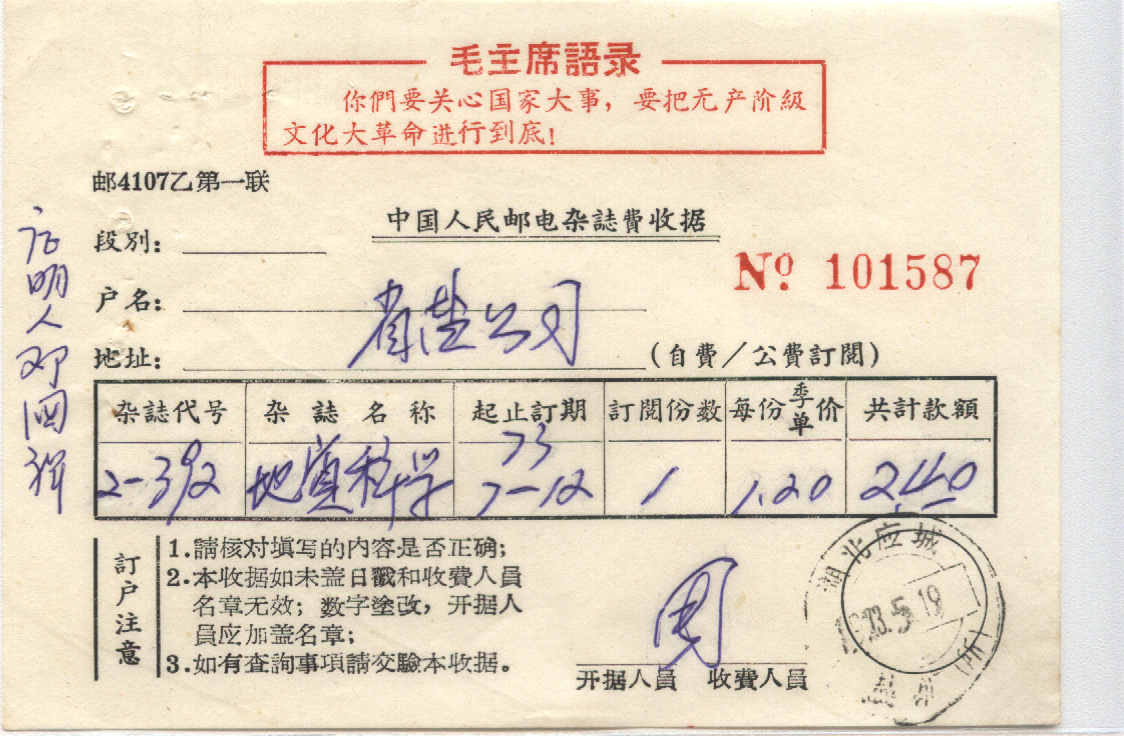 毛主席語录
你們要关心国家大事，要把无产阶級
文化大革命进行到底！
邮4107乙第一联
中国人民邮电杂誌費收据
段別：
№ 101587
户名：
省盐公司
地址：
(自費／公費訂閲)
杂誌代号 杂誌名称 起止訂期 訂閲份数 每份季单价 共計款額
2-392 地質科学 73 7-12 1 1.20 2.40
証明人邓国祥
訂户注意
1.請核对填写的內容是否正确；
2.本收据如未盖日戳和收費人員
名章无效；数字塗改，开据人
員应加盖名章；
3.如有查詢事項請交驗本收据。
周
开据人員 收費人員
湖北应城
73.5.19